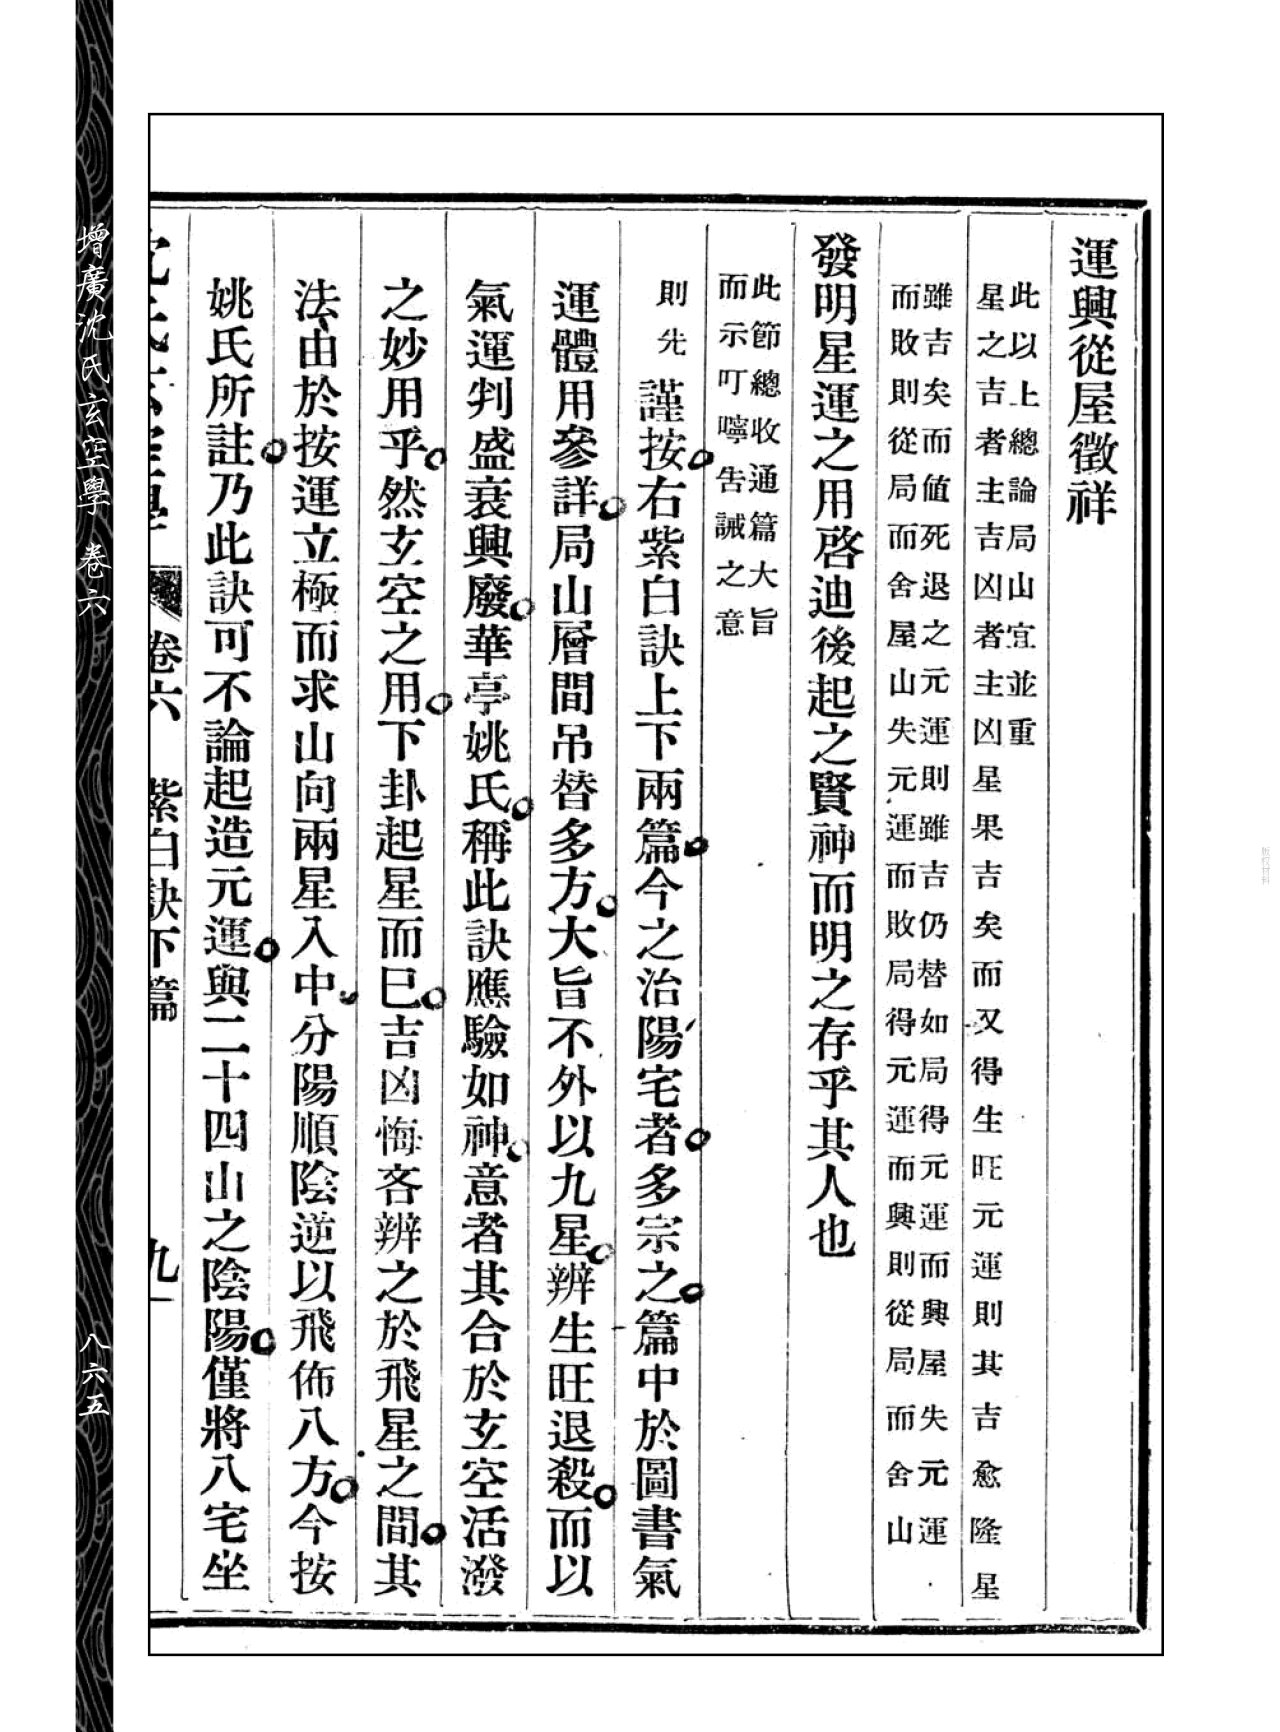 運興從屋徵祥
此以上總論局山宜並重
星之吉者主吉凶者主凶星果吉矣而又得生旺元運則其吉愈隆星
雖吉矣而値死退之元運則雖吉仍替如局得元運而興屋失元運
而敗則從局而舍屋山失元運而敗局得元運而興則從局而舍山
發明星運之用啓迪後起之賢神而明之存乎其人也
此節總收通篇大旨
而示叮嚀告誡之意
則先 謹按右紫白訣上下兩篇今之治陽宅者多宗之篇中於圖書氣
運體用參詳局山層間吊替多方大旨不外以九星辨生旺退殺而以
氣運判盛衰興廢華亭姚氏稱此訣應驗如神意者其合於玄空活潑
之妙用乎然玄空之用下卦起星而巳吉凶悔吝辨之於飛星之間其
法由於按運立極而求山向兩星入中分陽順陰逆以飛佈八方今按
姚氏所註乃此訣可不論起造元運與二十四山之陰陽僅將八宅坐
沈氏玄空學 卷六 紫白訣下篇 九一
增廣沈氏玄空學 卷六 八六五